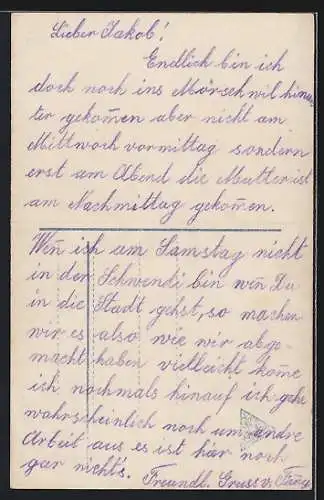 Lieber Jakob!
Endlich bin ich
doch noch ins Mörschwil hinun-
ter gekom̄en aber nicht am
Mittwoch vormittag sondern
erst am Abend die Mutter ist
am Nachmittag gekom̄en.
Wen̄ ich am Samstag nicht
in der Schwendi bin wen̄ Du
in die Stadt gehst, so machen
wir es also wie wir abge-
macht haben vielleicht kom̄e
ich nochmals hinauf ich gehe
wahrscheinlich noch um andre
Arbeit aus es ist här noch
gar nicht's. Freundl. Gruss v.